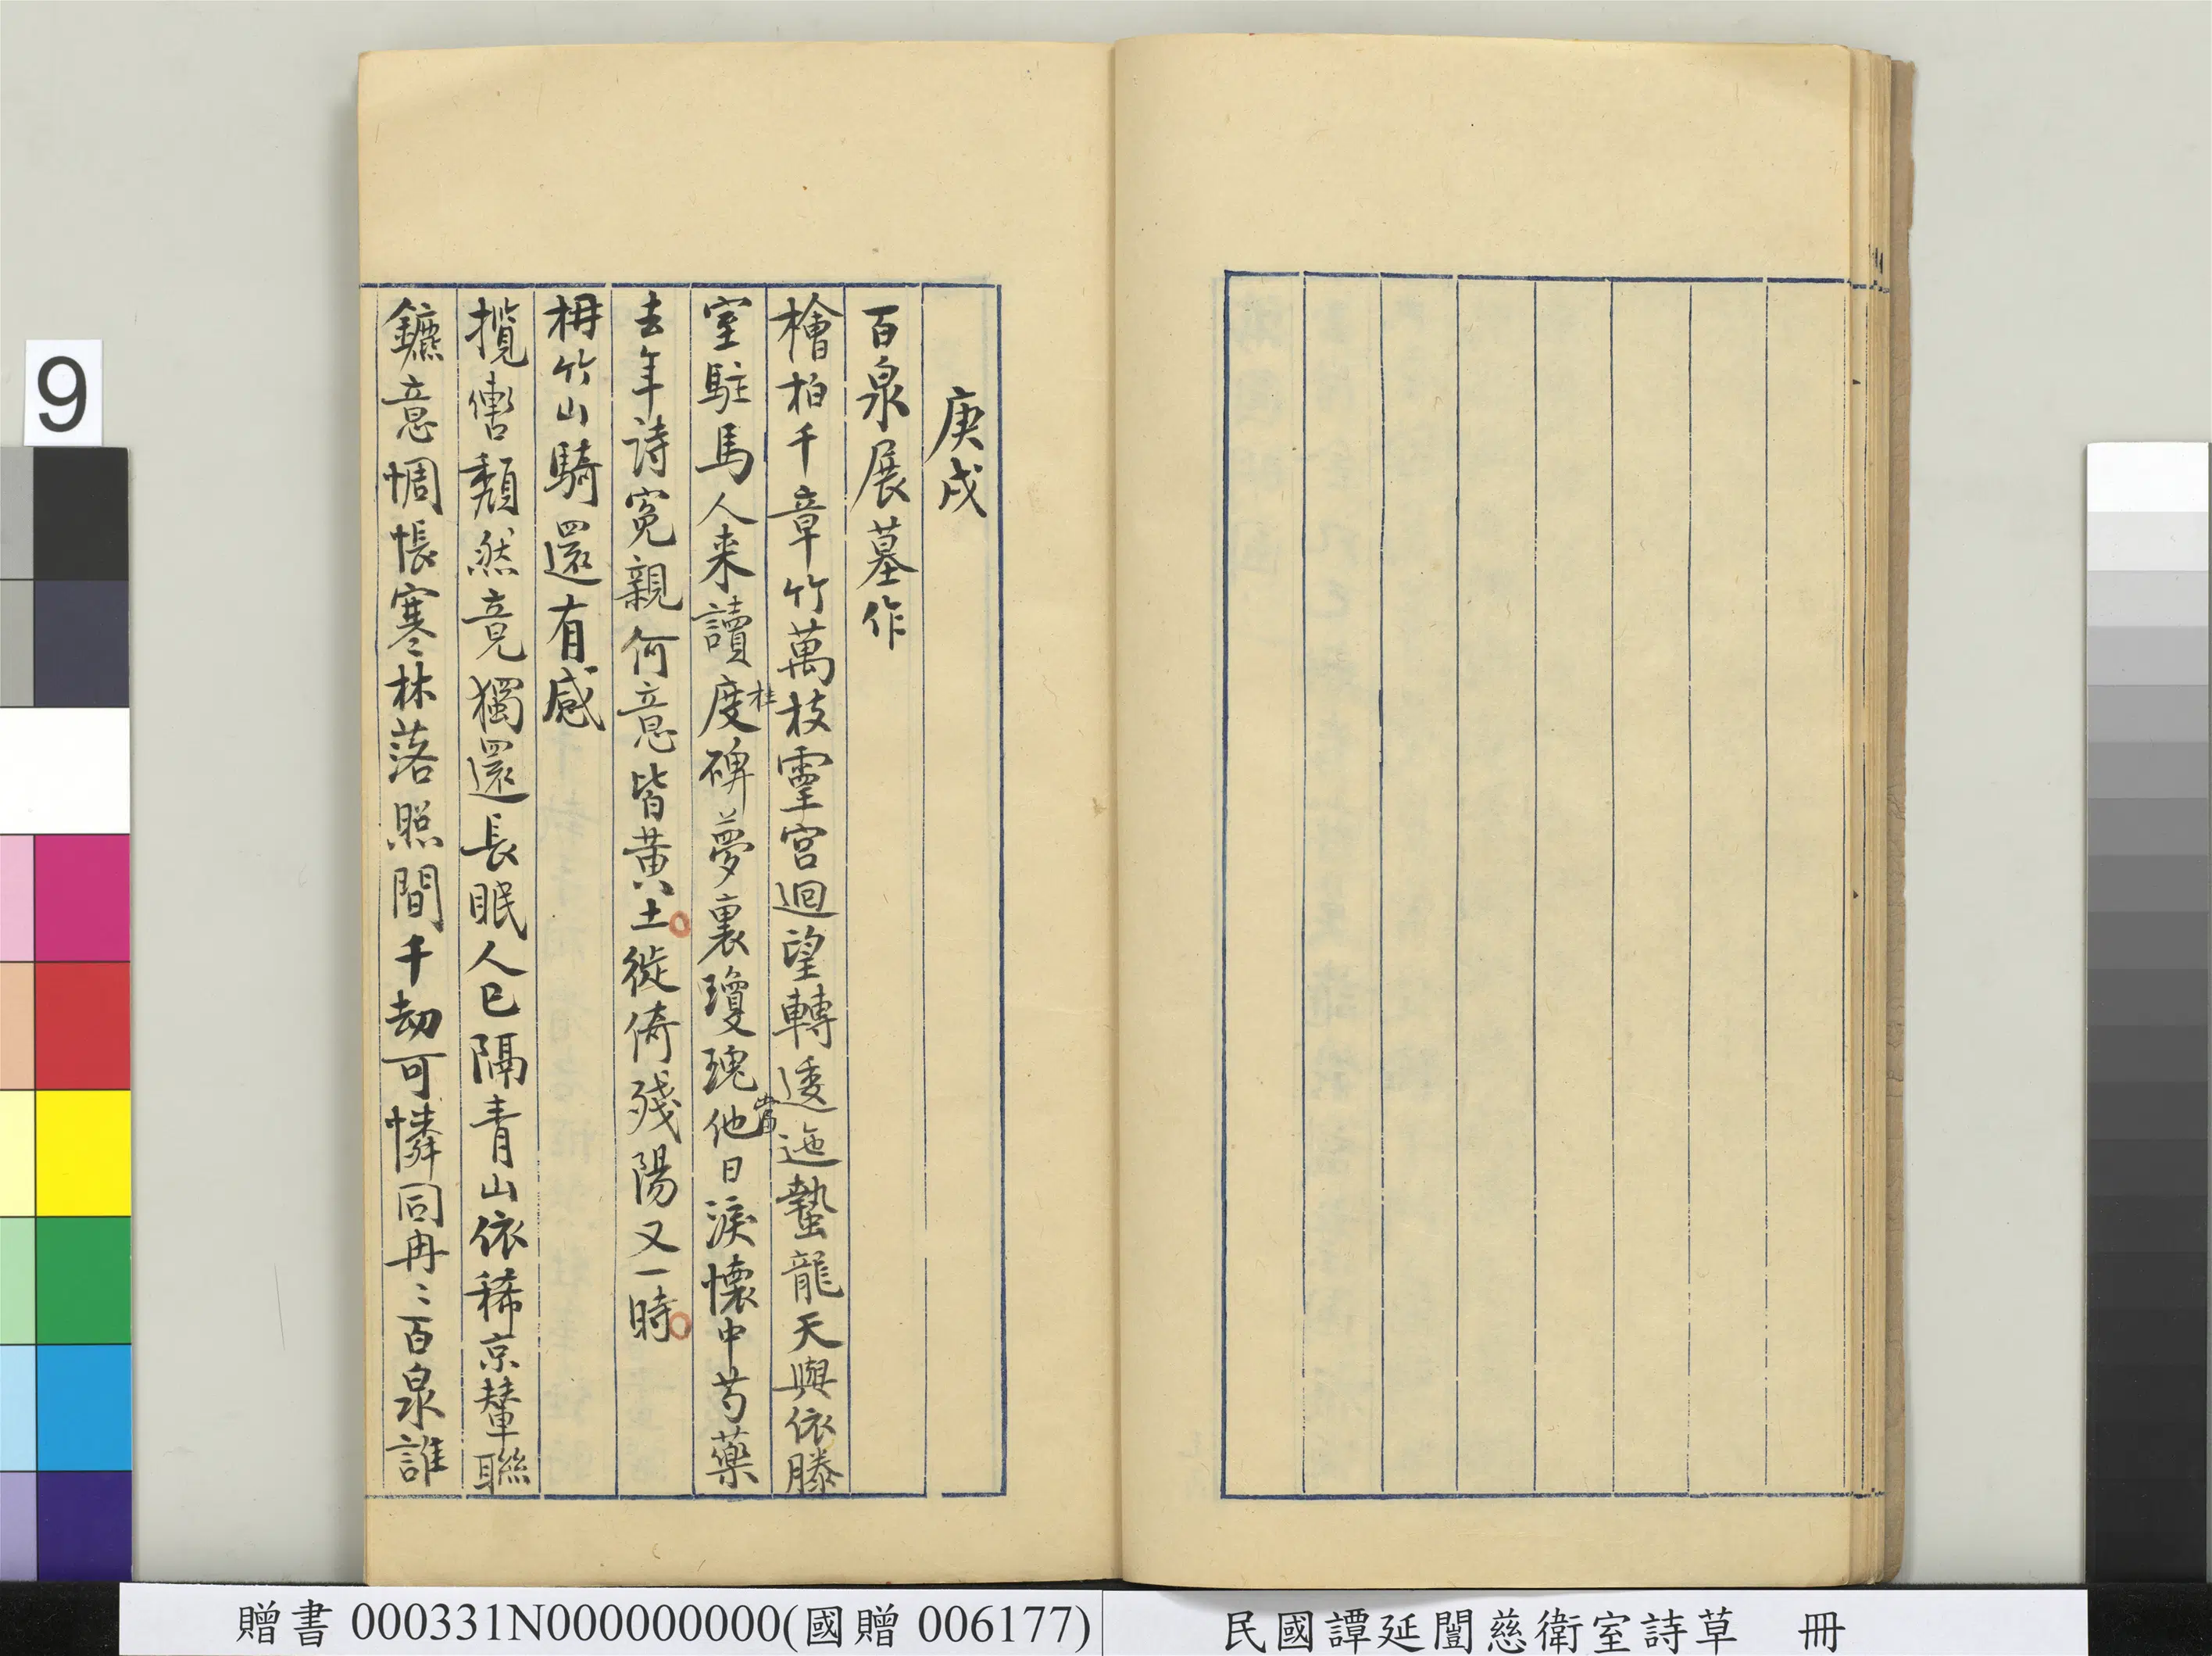 庚戌
百泉展墓作
檜柏千章竹萬枝靈宮迴望轉逶迤蟄龍天與依滕
室駐馬人来讀度碑夢裏瓊瑰他日淚懷中芍藥
桂
當
去年詩寃親何意皆黃土徙倚殘陽又一時
枏竹山騎還有感
攬轡頹然竟獨還長眠人已隔青山依稀京輦聯
鑣意惆悵寒林落照間千劫可憐同冉〻百泉誰
9
贈書000331N000000000(國贈006177)
民國譚延闓慈衛室詩草 冊